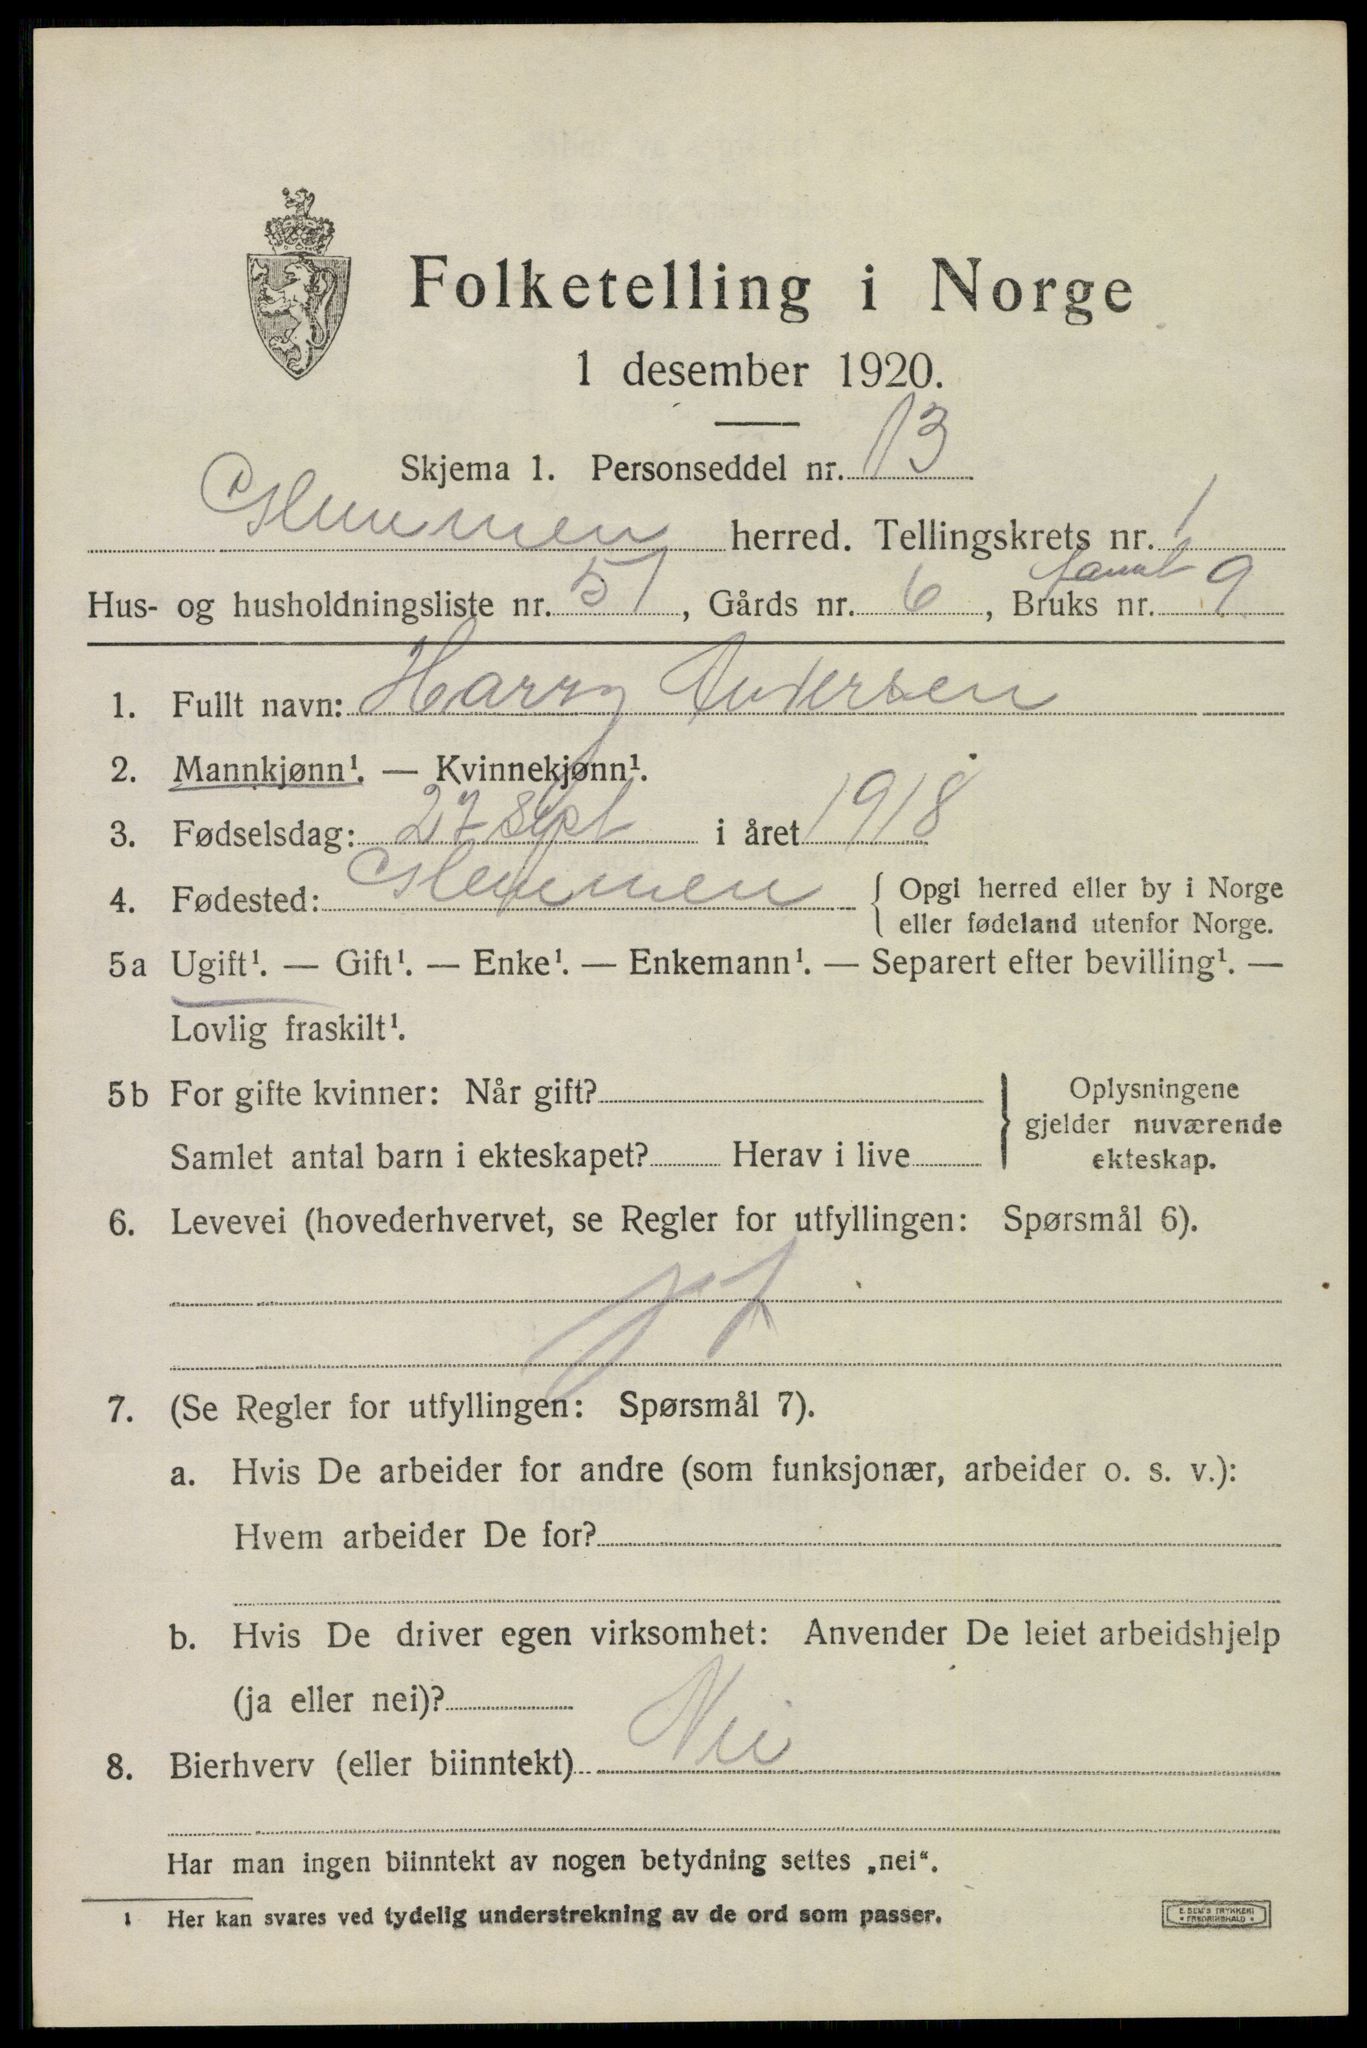 Folketelling i Norge
1 desember 1920.
Skjema 1. Personseddel nr. 13
Glemmen herred. Tellingskrets nr. 1
Hus- og husholdningsliste nr. 51, Gårds nr. 6, Bruks nr. 9
1. Fullt navn: Harry Andersen
2. Mannkjønn¹. — Kvinnekjønn¹.
3. Fødselsdag: 27 Sept i året 1918
4. Fødested: Glemmen { Opgi herred eller by i Norge
eller fødeland utenfor Norge.
5a Ugift¹. — Gift¹. — Enke¹. — Enkemann¹. — Separert efter bevilling¹. —
Lovlig fraskilt¹.
5b For gifte kvinner: Når gift? } Oplysningene
gjelder nuværende
ekteskap.
Samlet antal barn i ekteskapet? Herav i live
6. Levevei (hovederhvervet, se Regler for utfyllingen: Spørsmål 6).
7. (Se Regler for utfyllingen: Spørsmål 7).
a. Hvis De arbeider for andre (som funksjonær, arbeider o. s. v.):
Hvem arbeider De for?
b. Hvis De driver egen virksomhet: Anvender De leiet arbeidshjelp
(ja eller nei)?
8. Bierhverv (eller biinntekt) Nei
Har man ingen biinntekt av nogen betydning settes „nei“.
1 Her kan svares ved tydelig understrekning av de ord som passer.
E. SEM'S TRYKKERI
FREDRIKSHALD